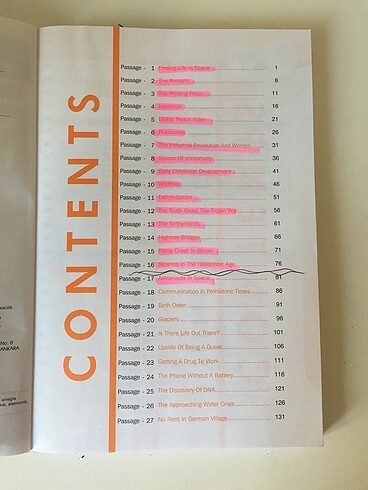 CONTENTS
Passage - 1 Finding Life in Space 1
Passage - 2 The Romans 6
Passage - 3 The Printing Press 11
Passage - 4 Insomnia 16
Passage - 5 Global Peace Index 21
Passage - 6 Hurricanes 26
Passage - 7 The Industrial Revolution And Women 31
Passage - 8 Source Of Immortality 36
Passage - 9 Early Childhood Development 41
Passage - 10 46
Passage - 11 Deforestation 51
Passage - 12 The Truth About The Trojan War 56
Passage - 13 The Netherlands 61
Passage - 14 Highway Bridges 66
Passage - 15 Plane Crash In 71
Passage - 16 Science In The Hellenistic Age 76
Passage - 17 Astronauts In Space 81
Passage - 18 Communication in Prehistoric Times 86
Passage - 19 Birth Order 91
Passage - 20 Glaciers 96
Passage - 21 Is There Life Out There? 101
Passage - 22 Upside Of Being A Guest 106
Passage - 23 Getting A Drug To Work 111
Passage - 24 The Phone Without A Battery 116
Passage - 25 The Discovery Of DNA 121
Passage - 26 The Approaching Water Crisis 126
Passage - 27 No Rent In German Village 131
No: 8
ANKARA